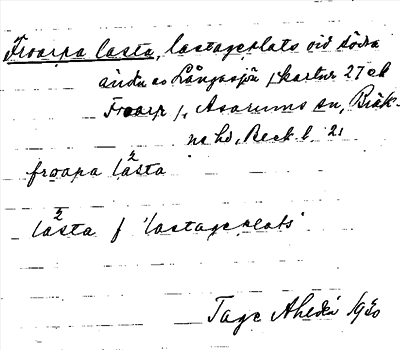 Froarpa lasta, lastageplats vid södra
ändan av Långasjön / kartur 27 ch
Froarp /, Asarums sn, Bräk-
ne hd, Bl. l. 21
froapa lasta
lasta f 'lastageplats'
Tage Ahldén 1930